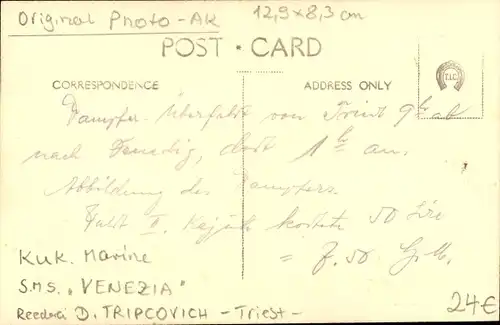 Original Photo-AK 12,9x8,3 cm
POST · CARD
T.I.C.
CORRESPONDENCE ADDRESS ONLY
Dampfer-Überfahrt von Triest 9h ab
nach Venedig, dort 1h an.
Abbildung des Dampfers.
Fahrt II. Kajüte kostete 50 Lire
= 7.50 G.M.
K.u.K. Marine
S.M.S. "VENEZIA"
Reederei D. TRIPCOVICH - Triest -
24€